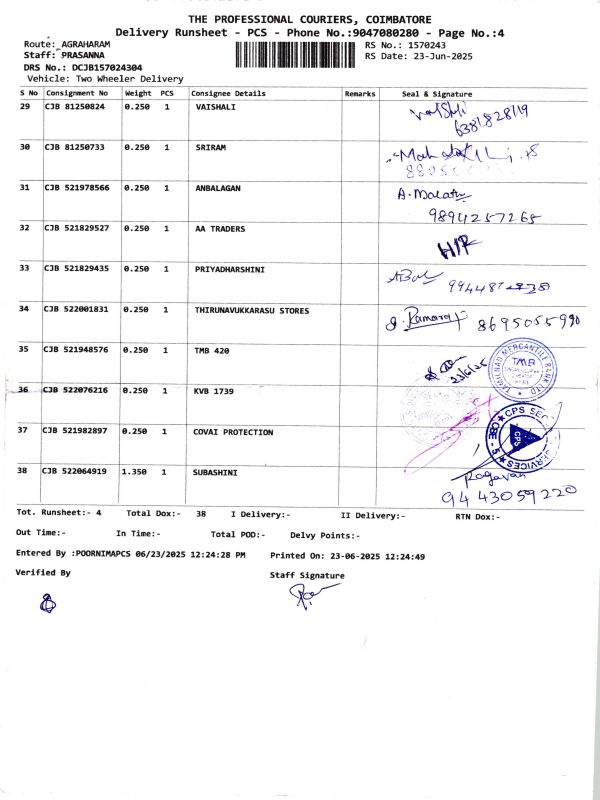 THE PROFESSIONAL COURIERS, COIMBATORE
Delivery Runsheet - PCS - Phone No.:9047080280 - Page No.:4
Route: AGRAHARAM
RS No.: 1570243
Staff: PRASANNA
RS Date: 23-Jun-2025
DRS No.: DCJB157024304
Vehicle: Two Wheeler Delivery
S No Consignment No Weight PCS Consignee Details Remarks Seal & Signature
29 CJB 81250824 0.250 1 VAISHALI
6381828119
30 CJB 81250733 0.250 1 SRIRAM
31 CJB 521978566 0.250 1 ANBALAGAN A. Malathi
9894257265
32 CJB 521829527 0.250 1 AA TRADERS
H/R
33 CJB 521829435 0.250 1 PRIYADHARSHINI
34 CJB 522001831 0.250 1 THIRUNAVUKKARASU STORES Ramaraj 8695055990
35 CJB 521948576 0.250 1 TMB 420
23/6/25
TAMILNAD MERCANTILE BANK LTD
TMB
36 CJB 522076216 0.250 1 KVB 1739
37 CJB 521982897 0.250 1 COVAI PROTECTION
CPS
CBE - 5
38 CJB 522064919 1.350 1 SUBASHINI
Ragavan
9443059220
Tot. Runsheet:- 4 Total Dox:- 38 I Delivery:- II Delivery:- RTN Dox:-
Out Time:- In Time:- Total POD:- Delvy Points:-
Entered By :POORNIMAPCS 06/23/2025 12:24:28 PM Printed On: 23-06-2025 12:24:49
Verified By
Staff Signature